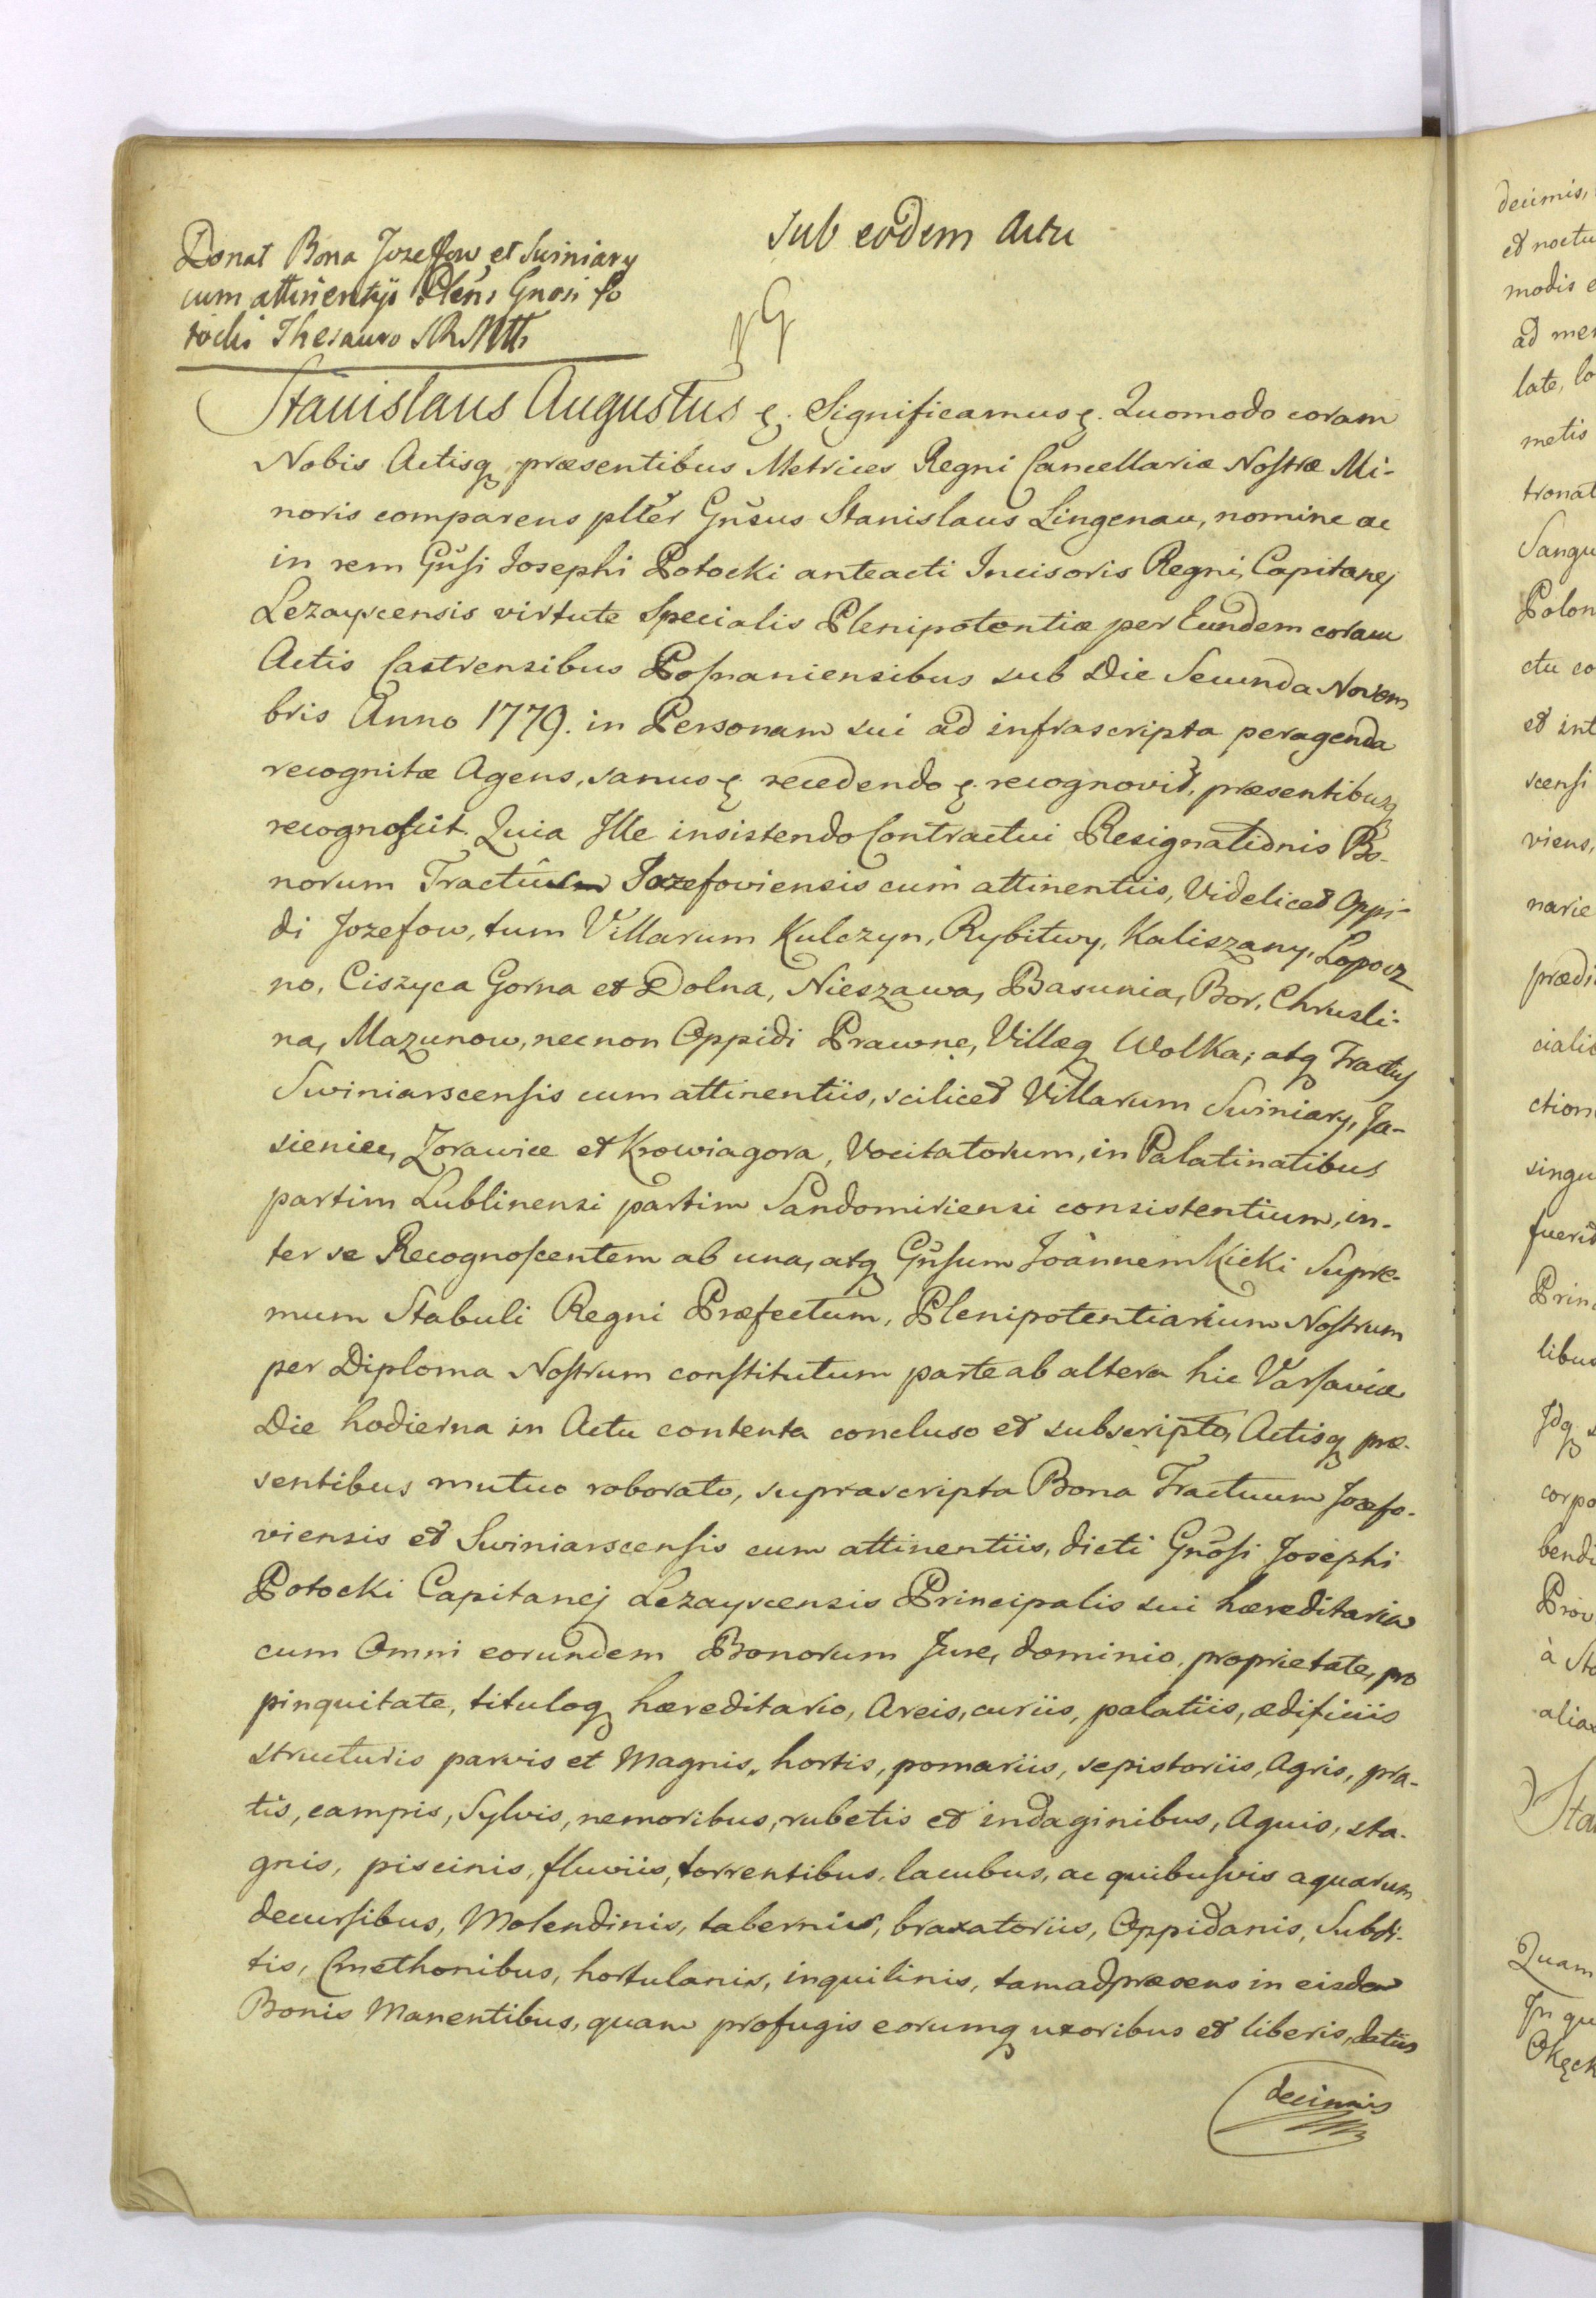 Sub eodem Actu
Donat Bona Jozeffow et Swiniary
cum attinentijs Plens Gnosi Po
tocki Thesauro
Stanislaus Augustus &. Significamus &. Quomodo coram
Nobis Actisq præsentibus Metrices Regni Cancellariæ Nostræ Mi-
noris comparens plter Gnsus Stanislaus Lingenau, nomine ac
in rem Gnsi Josephi Potocki anteacti Incisoris Regni, Capitanej
Lezayscensis virtute Specialis Plenipotentiæ per Eundem coram
Actis Castrensibus Posnaniensibus sub Die Secunda Novem
bris Anno 1779. in Personam sui ad infrascripta peragenda
recognitæ Agens, sanus & recedendo &. recognovit, præsentibusq
recognoscit. Quia Ille insistendo Contractui Resignationis Bo-
norum Tractûs Jozefoviensis cum attinentiis, Videlicet Oppi-
di Jozefow, tum Villarum Kulczyn, Rybitwy, Kaliszany, Lopocz
no, Ciszyca Gorna et Dolna, Nieszawa, Basunia, Bor, Chrusli-
na, Mazunow, necnon Oppidi Prawne, Villæq Wolka; atq Tractus
Swiniarscensis cum attinentiis, scilicet Villarum Swiniary, Ja-
sieniec, Zorawice et Krowiagora, Vocitatorum, in Palatinatibus
partim Lublinensi partim Sandomiriensi consistentium, in-
ter se Recognoscentem ab una, atq Gnsum Joânnem Kicki Supre-
mum Stabuli Regni Præfectum, Plenipotentiarium Nostrum
per Diploma Nostrum constitutum parte ab altera hic Varsaviæ
Die hodierna in Actu contenta concluso et subscripto, Actisq præ-
sentibus mutuo roborato, suprascripta Bona Tractuum Jozefo-
viensis et Swiniarscensis cum attinentiis, dicti Gnosi Josephi
Potocki Capitanej Lezayscensis Principalis sui hæreditaria
cum Omni eorundem Bonorum Jure, dominio, proprietate, pro
pinquitate, tituloq hæreditario, Areis, curiis, palatiis, ædificiis
structuris parvis et Magnis, hortis, pomariis, sepistoriis, Agris, pra-
tis, campis, Sylvis, nemoribus, rubetis et indaginibus, Aquis, sta-
gnis, piscinis, fluviis, torrentibus, lacubus, ac quibusvis aquarum
decursibus, Molendinis, tabernis, braxatoriis, Oppidanis, Subdi-
tis, Cmethonibus, hortulanis, inquilinis, tam ad præsens in eisdem
Bonis Manentibus, quam profugis eorumq uxoribus et liberis, datiis
decimis
decimis,
et noctu
modis e
ad men
late, lo
metis
tronat
Sangu
Polon
ctu co
et int
scensi
viens,
narie
prædi
cialis
ction
singu
fuerit
Princ
libus
Jdq s
corpo
bendi
Prov
à Sta
alias
Sta
Quam
In qu
Okęck